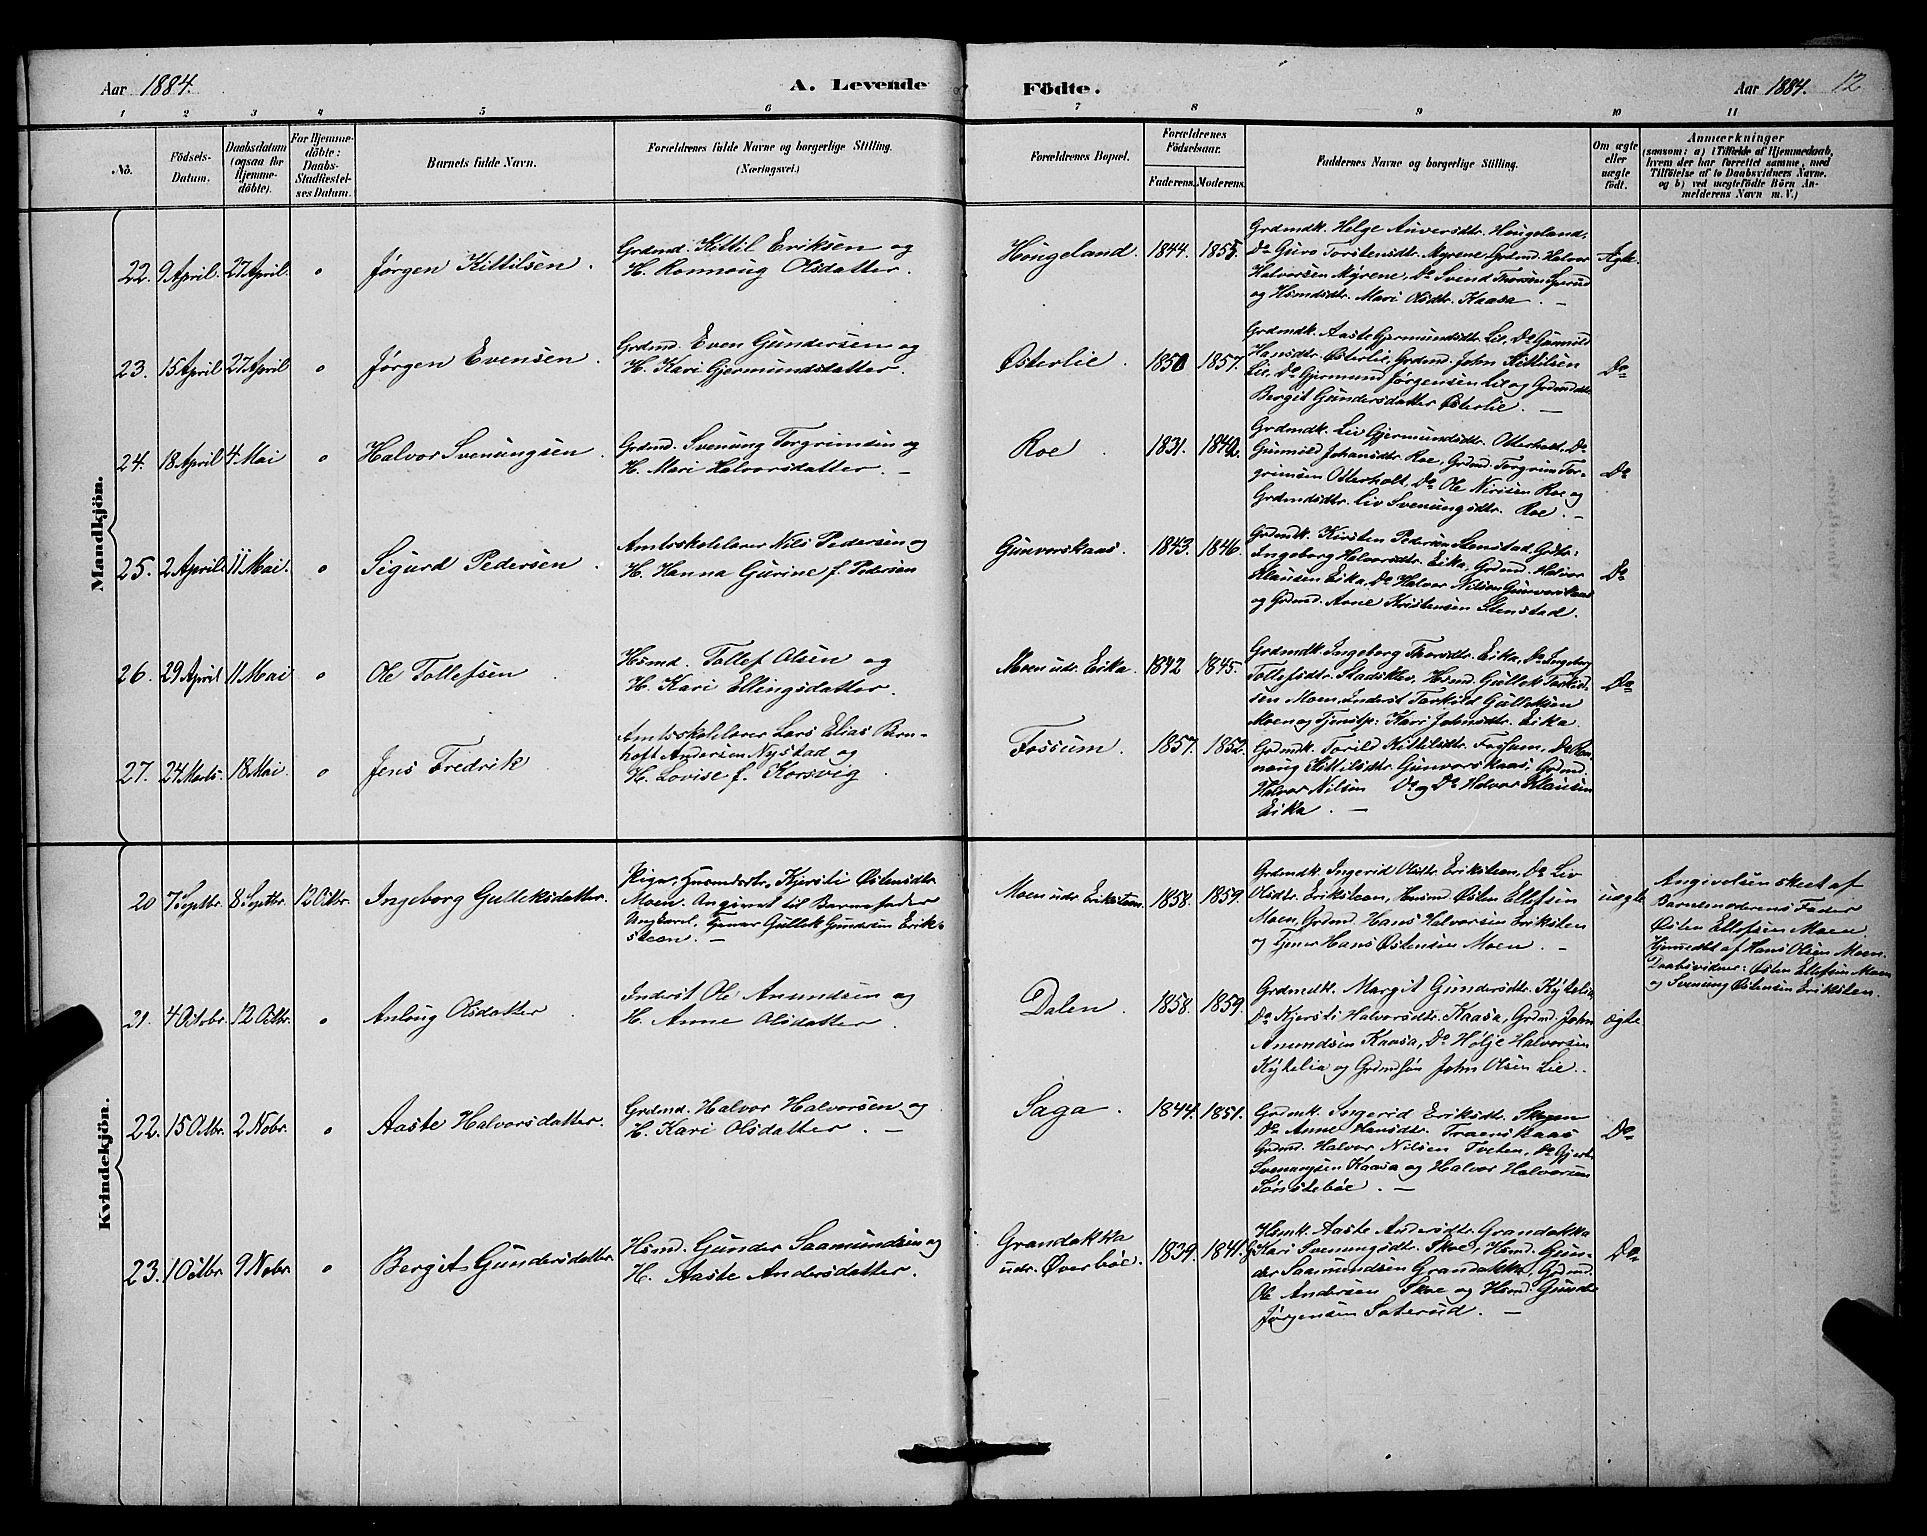 Aar 1884.
A. Levende
Födte.
Aar 1884. 12
1 2 3 4 5 6 7 8 9 10 11
No.
Födsels-
Datum.
Daabsdatum
(ogsaa for
Hjemme-
döbte).
For Hjemme-
döbte:
Daabs-
Stadfæstel-
ses Datum.
Barnets fulde Navn.
Forældrenes fulde Navne og borgerlige Stilling.
(Næringsvei.)
Forældrenes Bopæl.
Forældrenes
Födselsaar.
Faderens. Moderens.
Faddernes Navne og borgerlige Stilling.
Om ægte
eller
uægte
födt.
Anmærkninger
(saasom: a) i Tilfælde af Hjemmedaab,
hvem der har forrettet samme, med
Tilföielse af to Daabsvidners Navne.
og b) ved uægtefödte Börn An-
melderens Navn m. V.)
Mandkjön.
22. 9 April. 27 April. o Jørgen Kittilsen.
Grdmd. Kittil Eriksen og
H. Ronnoug Olsdatter.
Hougeland. 1844. 1855.
Grdmdk. Helge Anversdtr. Hougeland,
Do Guro Torstensdtr. Myrene, Grdmd. Halvor
Halvorsen Myrene, Do Svend Thorsen Sperud
og Hsmdsdtr. Mari Olsdtr. Kaasa. —
Ægte.
23. 15 April 27 April o Jørgen Evensen.
Grdmd. Even Gundersen og
H. Kari Gjermundsdatter.
Østerlie. 1850 1857.
Grdmdk. Aaste Gjermundsdtr. Lie, Do Gunild
Hansdtr. Østerlie, Grdmd. John Kittilsen
Lie, Do Gjermund Jørgensen Lie og Grdmdsdtr.
Bergit Gundersdatter Østerlie. —
Do
24. 18 April 4 Mai o Halvor Svenungsen
Grdmd. Svenung Torgrimsen og
H. Mari Halvorsdatter. —
Roe. 1831. 1842.
Grdmdk. Liv Gjermundsdtr. Osterholt, Do
Gunnild Johansdtr. Roe, Grdmd. Torgrim Tor-
grimsen Osterholt, Do Ole Nirisen Roe og
Grdmdsdtr. Liv Svenungsdtr. Roe. —
Do
25. 2 April 11 Mai. o Sigurd Pedersen.
Amtsskolelærer Nils Pedersen og
H. Hanna Gurine f. Pedersen
Gunvorskaas. 1843. 1846.
Grdmdk. Kirsten Pedersen Stenstad,
Ingeborg Halvorsdtr. Eika, Grdmd. Halvor
Klausen Eika, Do Halvor Nilsen Gunvorskaas
og Grdmd. Arne Kristensen Stenstad.
Do
26. 29 April 11 Mai o Ole Tollefsen.
Hsmd. Tollef Olsen og
H. Kari Ellingsdatter.
Moen udr. Eika. 1842 1845.
Grdmdk. Ingeborg Thorsdtr. Eika, Do Ingeborg
Tollefsdtr. Stadsklev, Hsmd. Gullek Torkild-
sen Moen, Inderst Torkild Gulleksen
Moen og Tjenstp: Kari Johnsdtr. Eika.
Do
27. 24 Marts. 18 Mai. o Jens Fredrik.
Amtsskolelærer Lars Elias Bern-
hoft Andersen Nystad og
H. Lovise f. Korsvig.
Fossum. 1857. 1852.
Grdmdk. Torild Kittilsdtr. Foslum, Do Ron-
noug Kittilsdtr. Gunvorskaas, Grdmd.
Halvor Nilsen Do og Do Halvor Klausen
Eika. —
Kvindekjön.
20 7 Septbr. 8 Septbr. 12 Octbr. Ingeborg Gulleksdatter.
Pige, Husmdsdtr. Kjersti Østensdtr.
Moen. Angivet til Barnefader
Ungkarl, Tjener Gullek Gundersen Erik-
steen. —
Moen udr. Eriksteen. 1858. 1859.
Grdmdk. Ingerid Olsdtr. Eriksteen, Do Liv
Olsdtr. Eriksteen, Husmd Østen Ellefsen
Moen, Grdmd. Hans Halvorsen Eriksten
og Tjener Hans Østensen Moen. —
uægte
Angivelsen skeet af
Barnemoderens Fader
Østen Ellefsen Moen.
Hjemedbt af Hans Olsen Moen.
Daabsvidner: Østen Ellefsen Moen
og Svenung Østensen Eriksten.
21. 4 Octobr. 12 Octbr. o Anlaug Olsdatter
Inderst Ole Amundsen og
H. Anne Olsdatter.
Dalen. 1858. 1859.
Grdmdk. Margit Gundersdtr. Kykelia
Do Kjersti Halvorsdtr. Kaasa, Grdmd. John
Amundsen Kaasa, Do Hølje Halvorsen
Kykelia og Grdmdsøn John Olsen Lie.
ægte
22. 15 Octbr. 2 Nobr. o Aaste Halvorsdatter.
Grdmd. Halvor Halvorsen og
H. Kari Olsdatter. —
Saga. 1844. 1851.
Grdmdk. Ingerid Eriksdtr. Skogen
Do Anne Hansdtr. Traerskaas
Grdmd. Halvor Nilsen Tveten, Do Gjert
Svenungsen Kaasa og Halvor Halvorsen
Sønstebøe. —
Do
23. 1 Octbr. 9 Nobr. o Bergit Gundersdatter.
Hsmd. Gunder Saamundsen og
H. Aaste Andersdatter.
Grandokka
udr. Øverbøe. 1839. 1841.
Hsmk. Aaste Andersdtr. Grandokka
Kari Svenungsdtr. Skoe, Hsmd. Gun-
der Saamundsen Grandokka, Grdmd.
Ole Andersen Skoe og Hsmd. Gunder
Jørgensen Saterud. —
Do